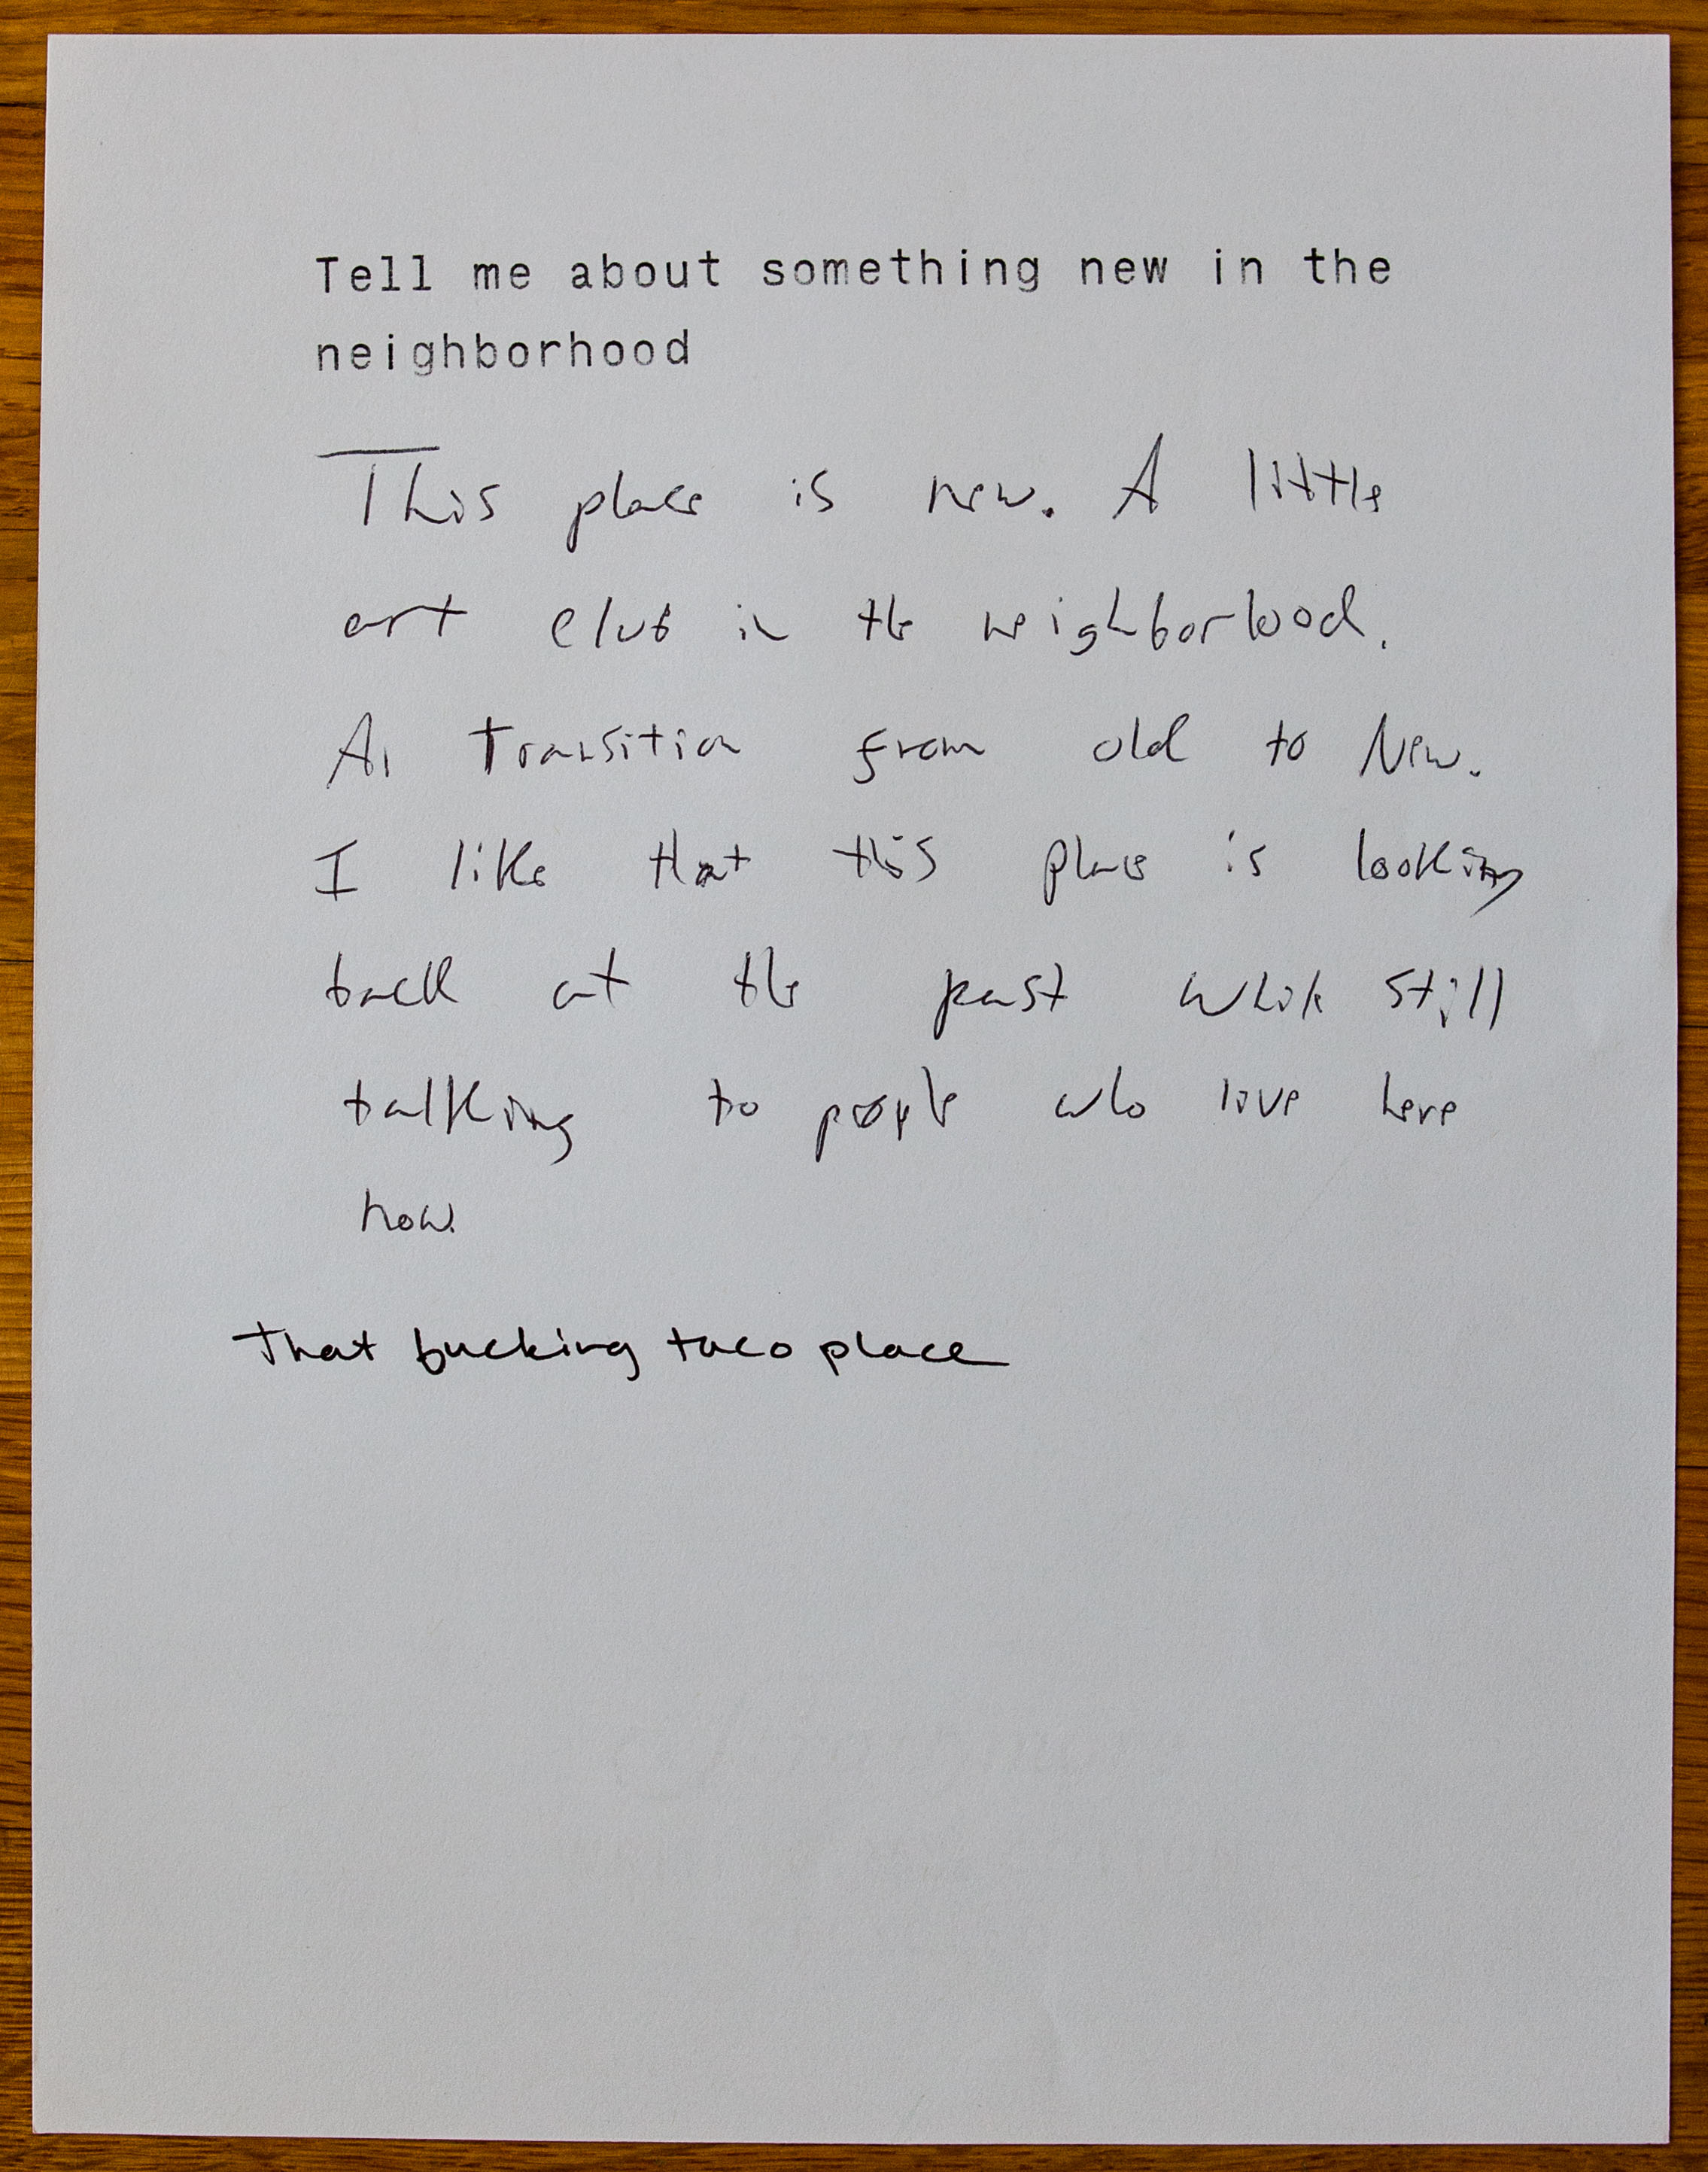 Tell me about something new in the
neighborhood
This place is new. A little
art club in the neighborhood.
A transition from old to New.
I like that this place is looking
back at the past while still
talking to people who live here
now.
That fucking taco place